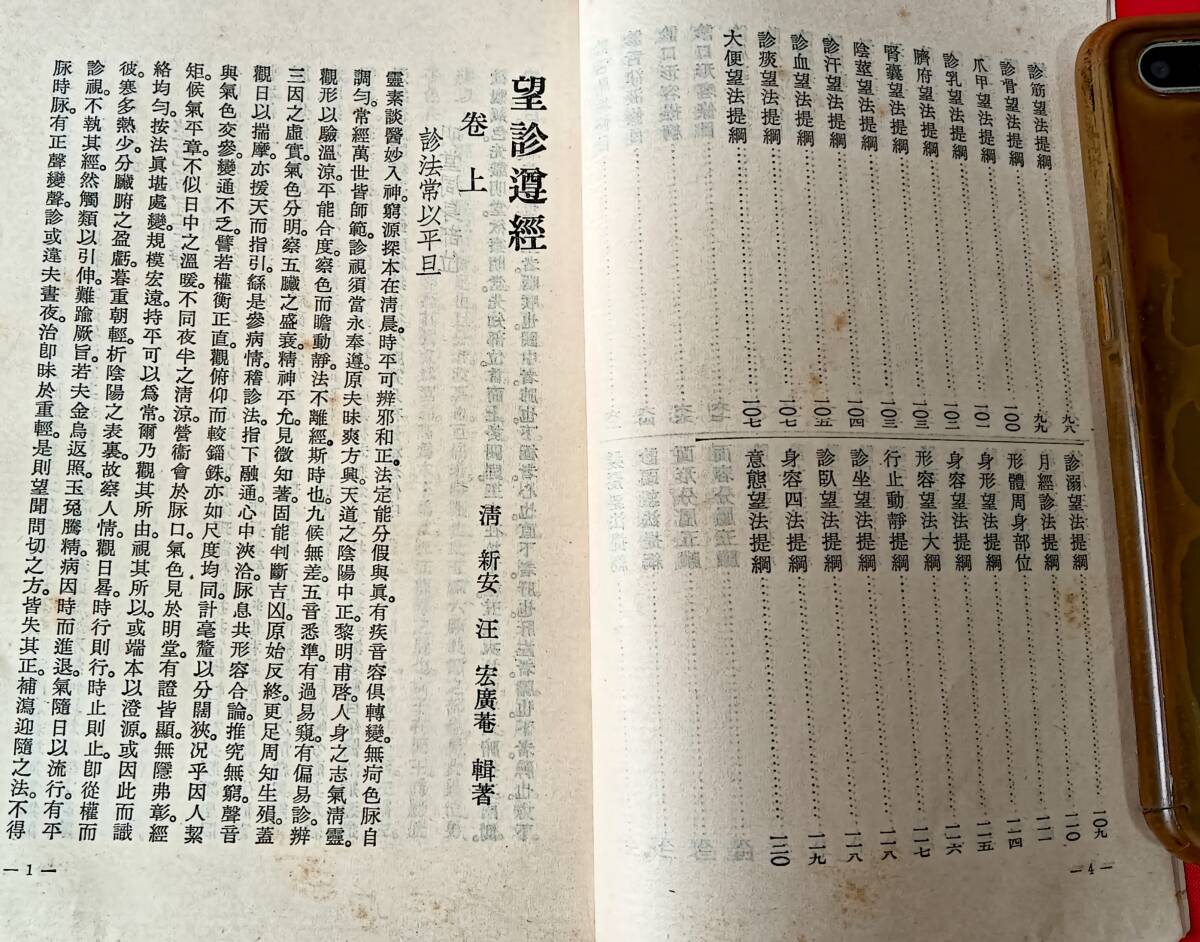 診筋望法提綱……九八
診骨望法提綱……九九
爪甲望法提綱……一〇〇
診乳望法提綱……一〇一
臍府望法提綱……一〇二
腎囊望法提綱……一〇三
陰莖望法提綱……一〇三
診汗望法提綱……一〇四
診血望法提綱……一〇五
診痰望法提綱……一〇七
大便望法提綱……一〇七
診溺望法提綱……一〇九
月經診法提綱……一一〇
形體周身部位……一一一
身形望法提綱……一一四
身容望法提綱……一一五
形容望法大綱……一一六
行止動靜提綱……一一七
診坐望法提綱……一一八
診臥望法提綱……一一八
身容四法提綱……一一九
意態望法提綱……一二〇
—4—
望診遵經
卷上
清 新安 汪 宏廣菴 輯著
診法常以平旦
靈素談醫妙入神。窮源探本在清晨。時平可辨邪和正。法定能分假與眞。有疾音容俱轉變。無疴色脉自
調勻。常經萬世皆師範。診視須當永奉遵。原夫昧爽方興。天道之陰陽中正。黎明甫啓。人身之志氣淸靈。
觀形以驗溫涼。平能合度。察色而瞻動靜。法不離經。斯時也。九候無差。五音悉準。有過易窺。有偏易診。辨
三因之虛實。氣色分明。察五臟之盛衰。精神平允。見微知著。固能判斷吉凶。原始反終。更足周知生殞。蓋
觀日以揣摩。亦援天而指引。繇是參病情。稽診法。指下融通。心中浹洽。脉息共形容合論。推究無窮。聲音
與氣色交參。變通不乏。譬若權衡正直。觀俯仰而較錙銖。亦如尺度均同。計毫釐以分闊狹。况乎因人絜
矩。候氣平章。不似日中之溫暖。不同夜半之淸涼。營衞會於脉口。氣色見於明堂。有證皆顯。無隱弗彰。經
絡均勻。按法眞堪處變。規模宏遠。持平可以爲常。爾乃觀其所由。視其所以。或端本以澄源。或因此而識
彼。寒多熱少。分臟腑之盈虧。暮重朝輕。析陰陽之表裏。故察人情。觀日晷。時行則行。時止則止。卽從權而
診視。不執其經。然觸類以引伸。難踰厥旨。若夫金烏返照。玉兔騰精。病因時而進退。氣隨日以流行。有平
脉時脉。有正聲變聲。診或違夫晝夜。治卽昧於重輕。是則望聞問切之方。皆失其正。補瀉迎隨之法。不得
—1—